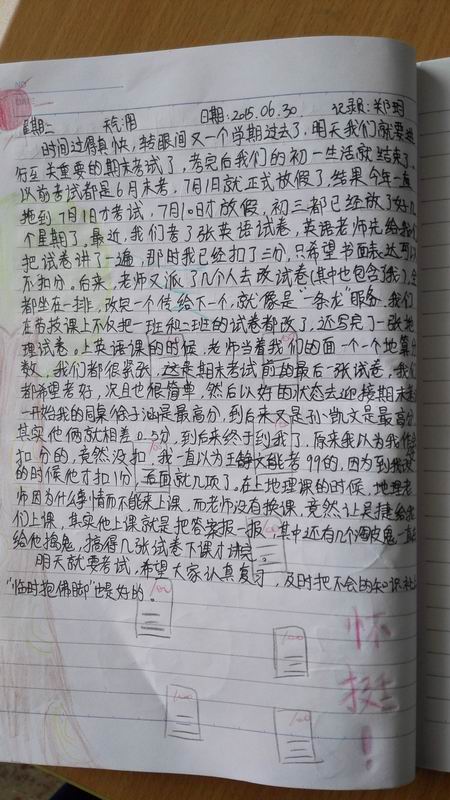 NO.
DATE
星期二 天气:阴 日期:2015.06.30 记录员:郑玥
时间过得真快,转眼间又一个学期过去了,明天我们就要进
行至关重要的期末考试了,考完后我们的初一生活就结束了。
以前考试都是6月末考,7月1日就正式放假了,结果今年一直
拖到7月1日才考试,7月10日才放假,初三都已经放了好几
个星期了。最近,我们考了张英语试卷,英语老师先给我们
把试卷讲了一遍,那时我已经扣了三分,只希望书面表达可以
不扣分。后来,老师又派了几个人去改试卷(其中也包含了我),全
都坐在一排,改完一个传给下一个,就像是“一条龙”服务。我们
在劳技课上不仅把一班和二班的试卷都改了,还写完了一张地
理试卷。上英语课的时候,老师当着我们的面一个一个地算分
数,我们都很紧张,这是期末考试前的最后一张试卷,我们
都希望考好,次且也很简单,然后以好的状态去迎接期末考
一开始我的同桌徐子涵是最高分,到后来又是孙凯文是最高分,
其实他俩就相差0.5分,到后来终于到我了,原来我以为我作
扣分的,竟然没扣,我一直以为王静文能考99的,因为到我改
的时候他才扣1分,后面就几项了。在上地理课的时候,地理老
师因为什么事情而不能来上课,而老师没有换课,竟然让吴捷给我
们上课,其实他上课就是把答案报一报,其中还有几个调皮鬼一直
给他捣鬼,搞得几张试卷下课才讲完。
明天就要考试,希望大家认真复习,及时把不会的知识补上
“临时抱佛脚”也是好的。
100
100
100
100
怀
挺
!